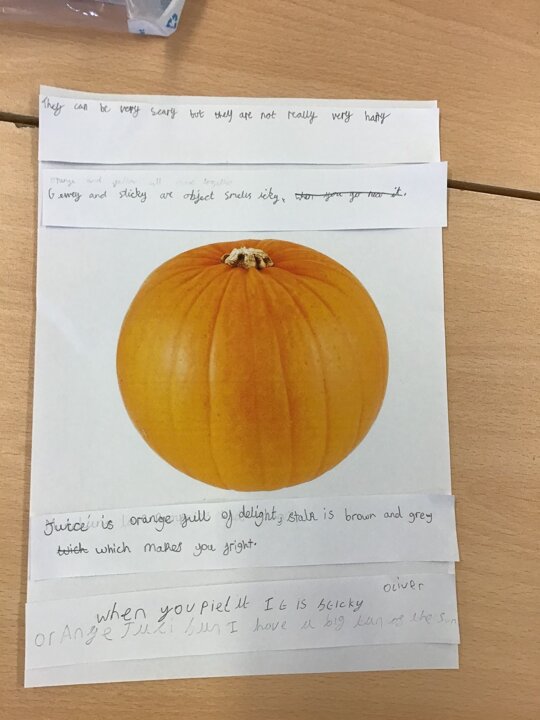 They can be very scary but they are not really very hairy
orange and yellow all together
Gewey and sticky are object smells icky, when you go near it.
Juice is orange full of delight, stalk is brown and grey
wich which makes you fright.
oliver
when you piel it It is sticky
orAnge Juci bun I have a big of the sun